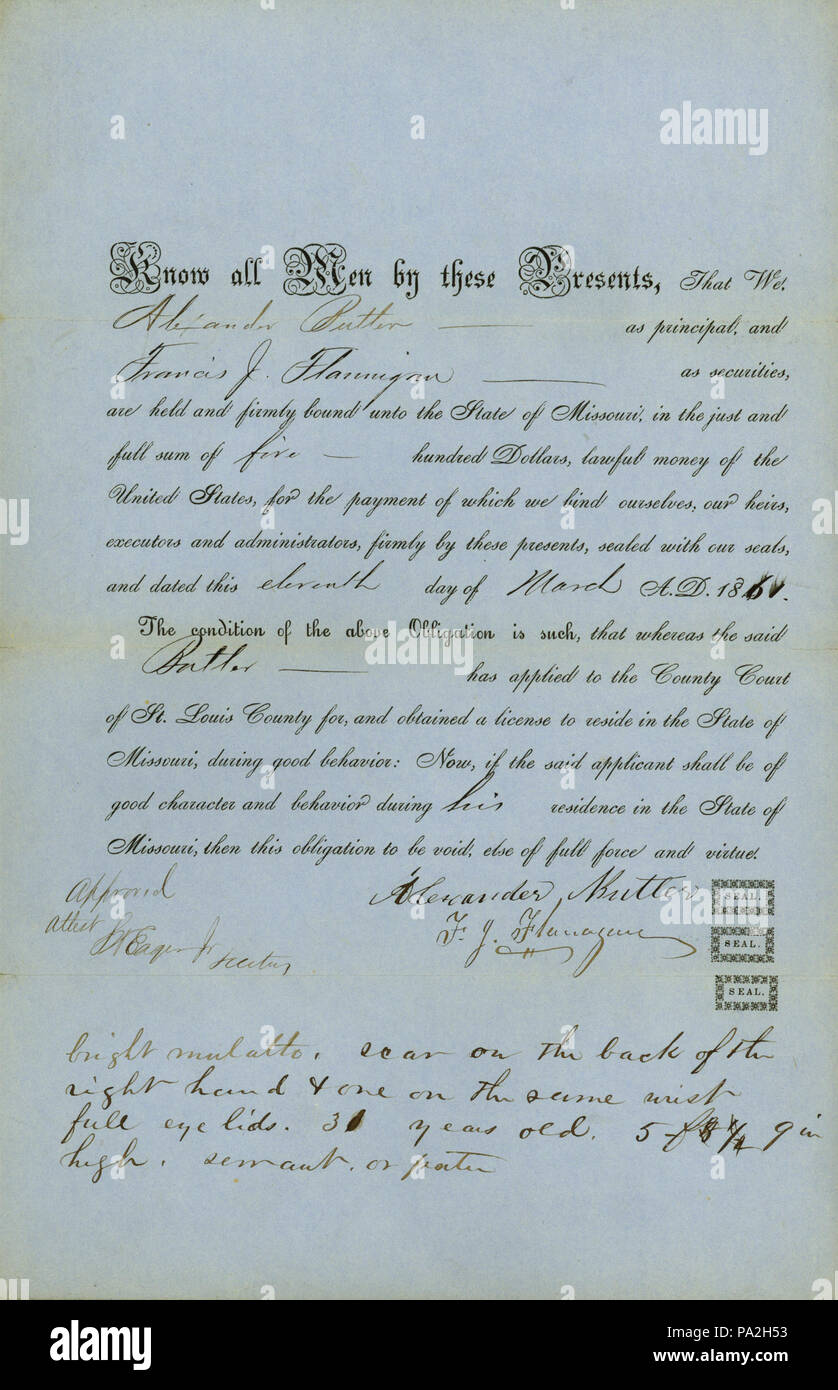 Know all Men by these Presents, That We,
Alexander Butler as principal, and
Francis J. Flannigan as securities,
are held and firmly bound unto the State of Missouri, in the just and
full sum of five hundred Dollars, lawful money of the
United States, for the payment of which we bind ourselves, our heirs,
executors and administrators, firmly by these presents, sealed with our seals,
and dated this eleventh day of March A.D. 1861.
The condition of the above Obligation is such, that whereas the said
Butler has applied to the County Court
of St. Louis County for, and obtained a license to reside in the State of
Missouri, during good behavior: Now, if the said applicant shall be of
good character and behavior during his residence in the State of
Missouri, then this obligation to be void, else of full force and virtue.
Approved
Alexander Butler SEAL.
attest
F. J. Flanagan SEAL.
SEAL.
bright mulatto. scar on the back of the
right hand & one on the same wrist
full eye lids. 31 years old. 5 9 in
high. servant. or
alamy
a
alamy
PA2H53
www.alamy.com